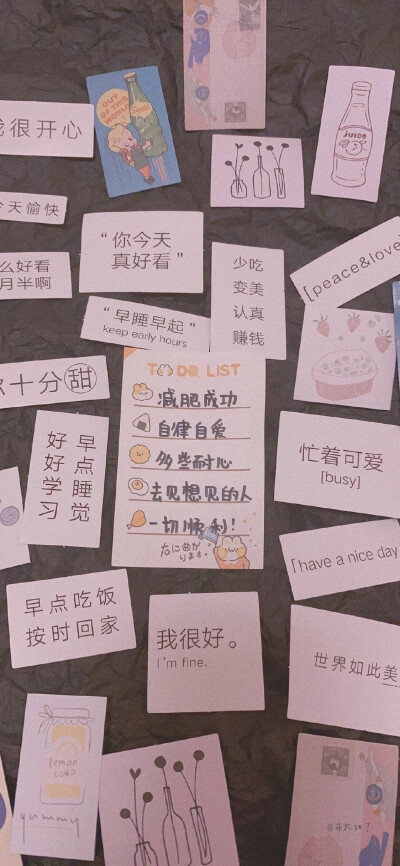 OUT
OF THIS
WORLD
我很开心
juice
今天愉快
“你今天
真好看”
么好看
月半啊
少吃
变美
认真
赚钱
[peace&love]
“早睡早起”
keep early hours
十分甜
TO DO LIST
减肥成功
自律自爱
多些耐心
去见想见的人
一切顺利!
右に曲が
ります。
早点睡觉
好好学习
忙着可爱
[busy]
「have a nice day
早点吃饭
按时回家
我很好。
I'm fine.
世界如此美
lemon
yummy